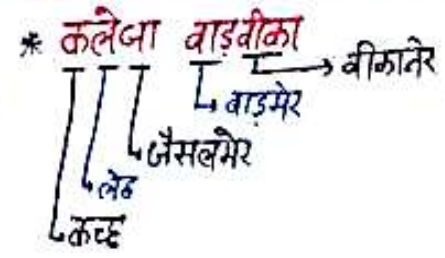 * कलेजा वाड़वीका
→ बीकानेर
बाड़मेर
जैसलमेर
लेह
कच्छ